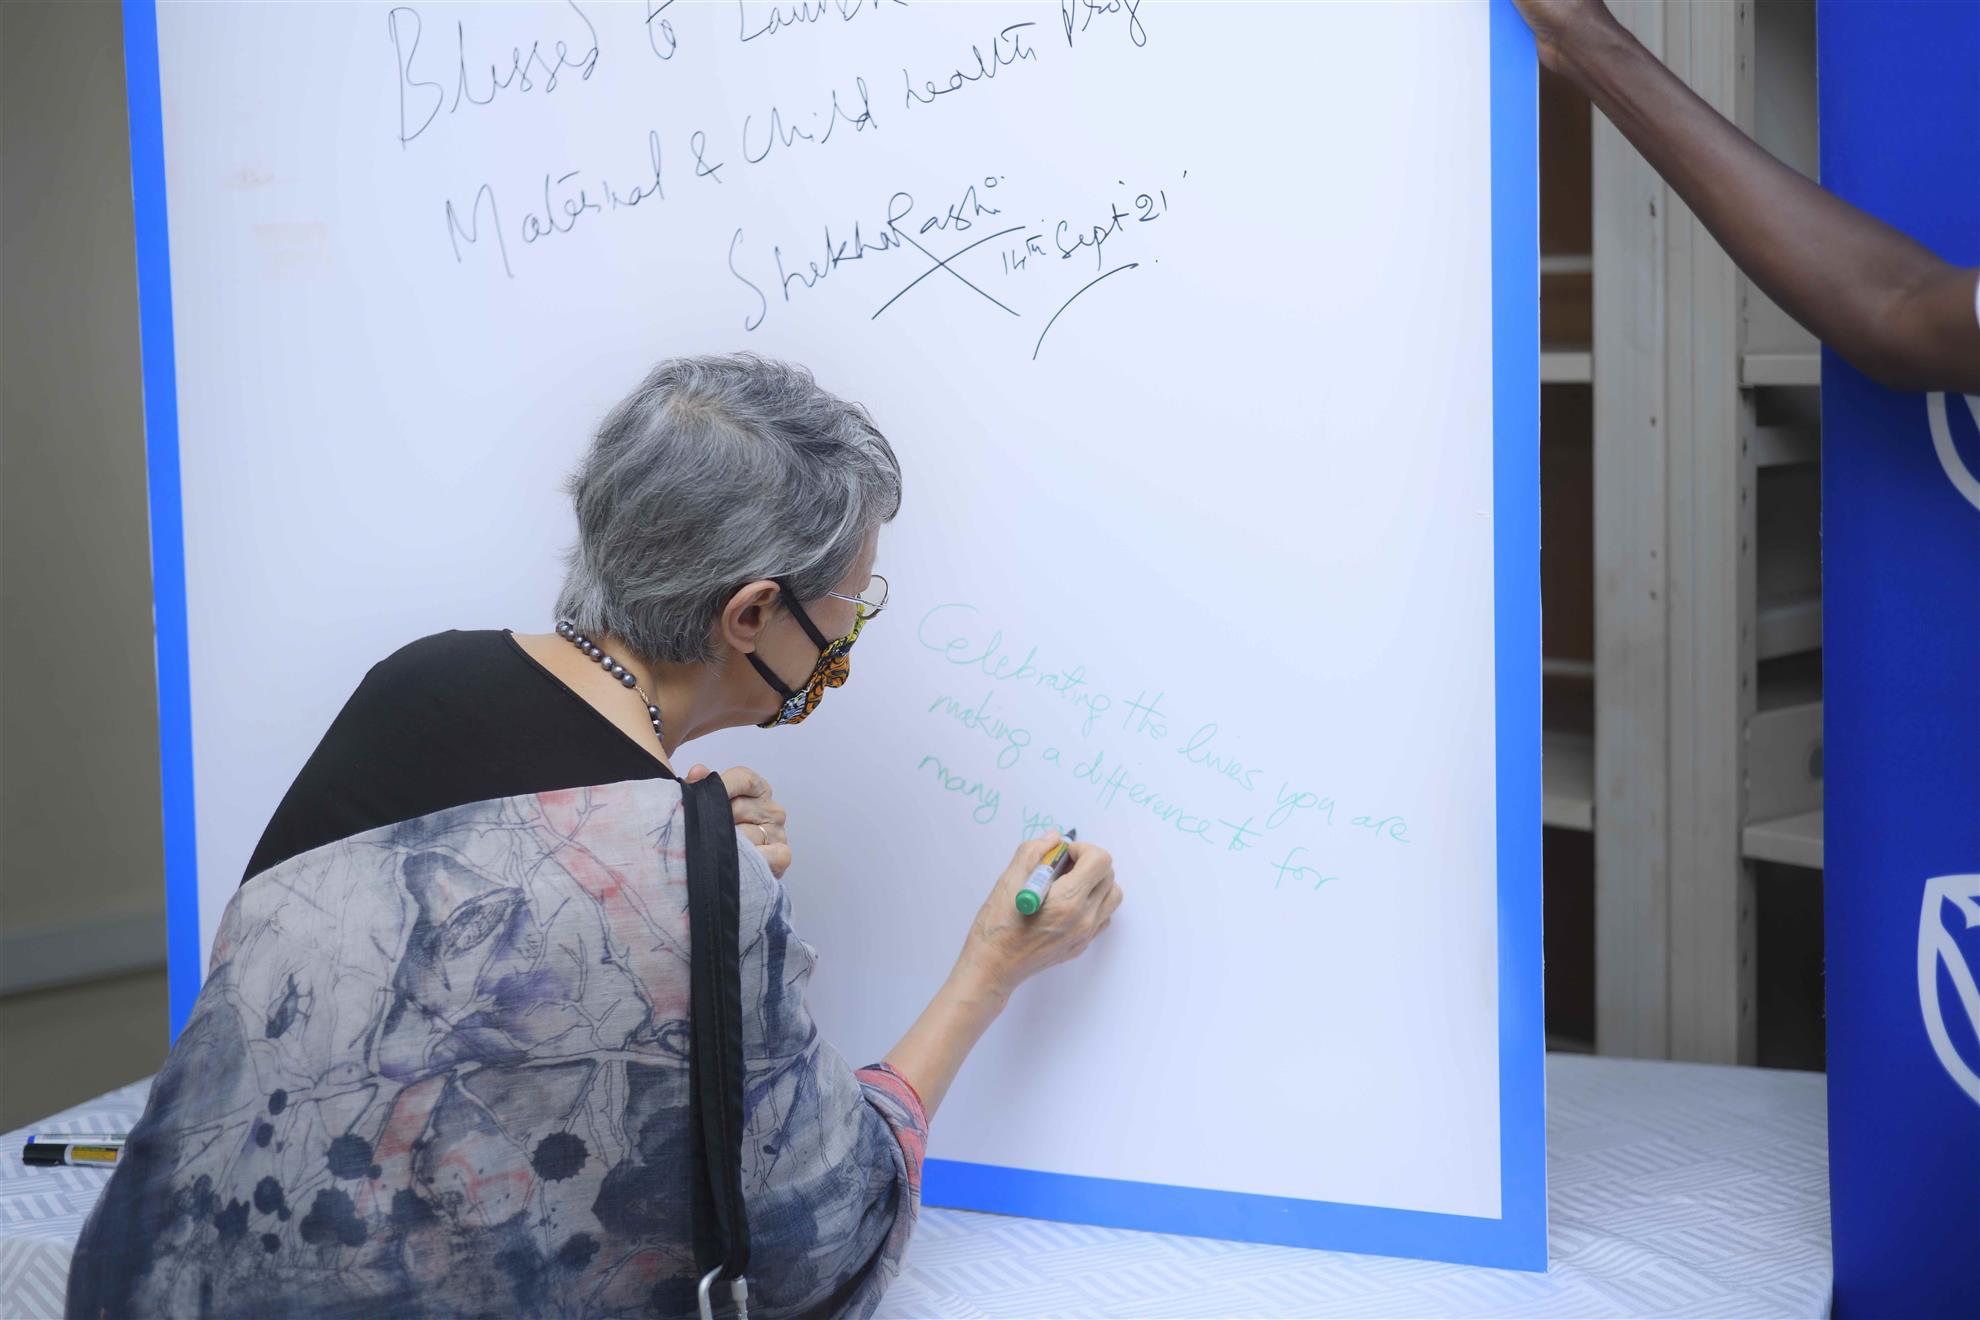 Blessed to Launch
Maternal & Child health Prog
Shekhar Rashi
14th Sept '21'
Celebrating the lives you are
making a difference to for
many ye